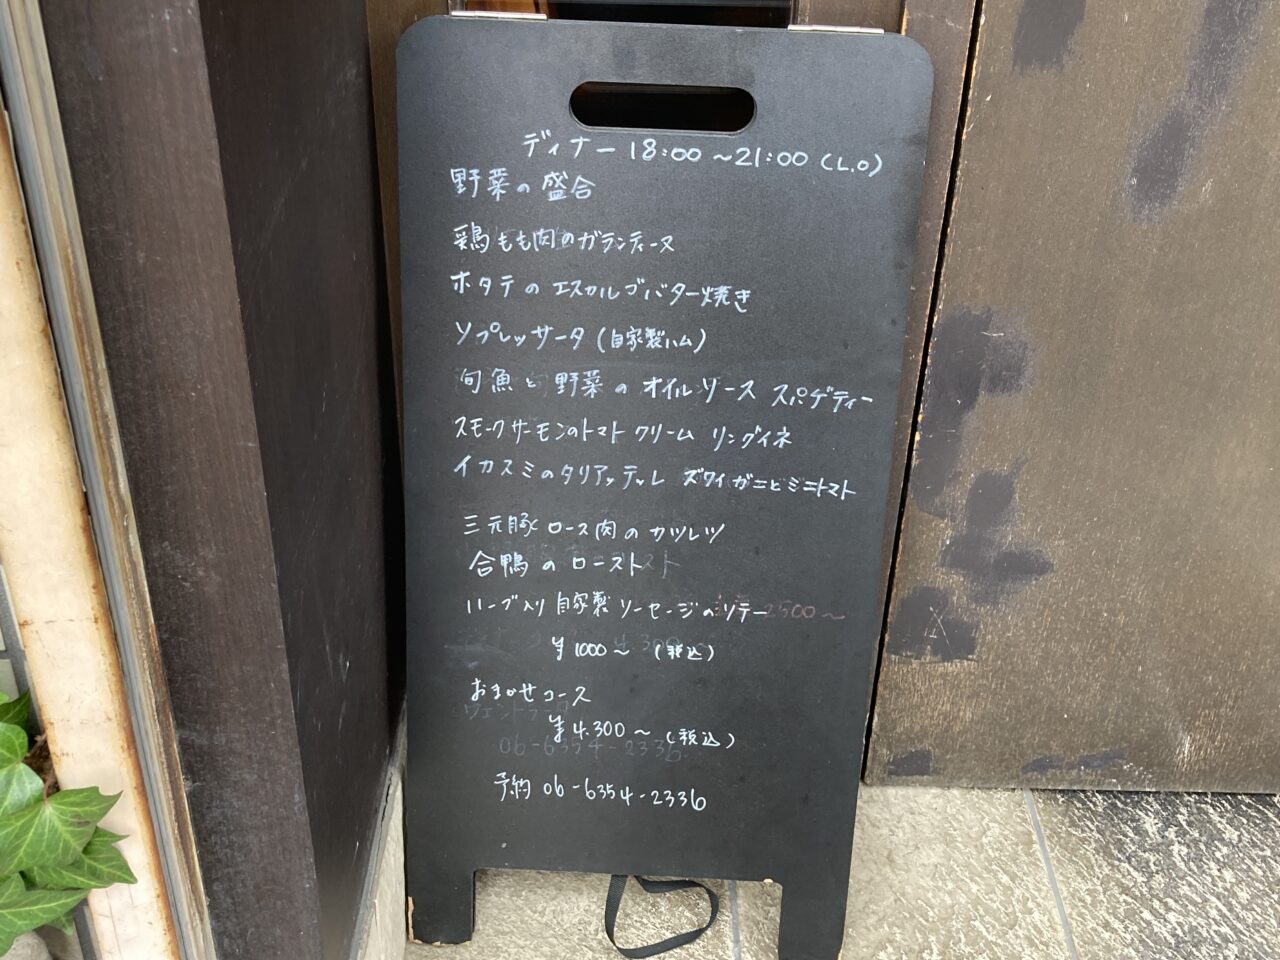 ディナー 18:00 ~21:00 (L.O)
野菜の盛合
鶏もも肉のガランティーヌ
ホタテのエスカルゴバター焼き
ソプレッサータ (自家製ハム)
旬魚と野菜のオイルソース スパゲティー
スモークサーモンのトマトクリーム リングイネ
イカスミのタリアッテッレ ズワイガニとミニトマト
三元豚ロース肉のカツレツ
合鴨のロースト
ハーブ入り自家製ソーセージのソテー
2500~
¥1000~ (税込)
おまかせコース
¥4.300~ (税込)
06-6354-2336
予約 06-6354-2336